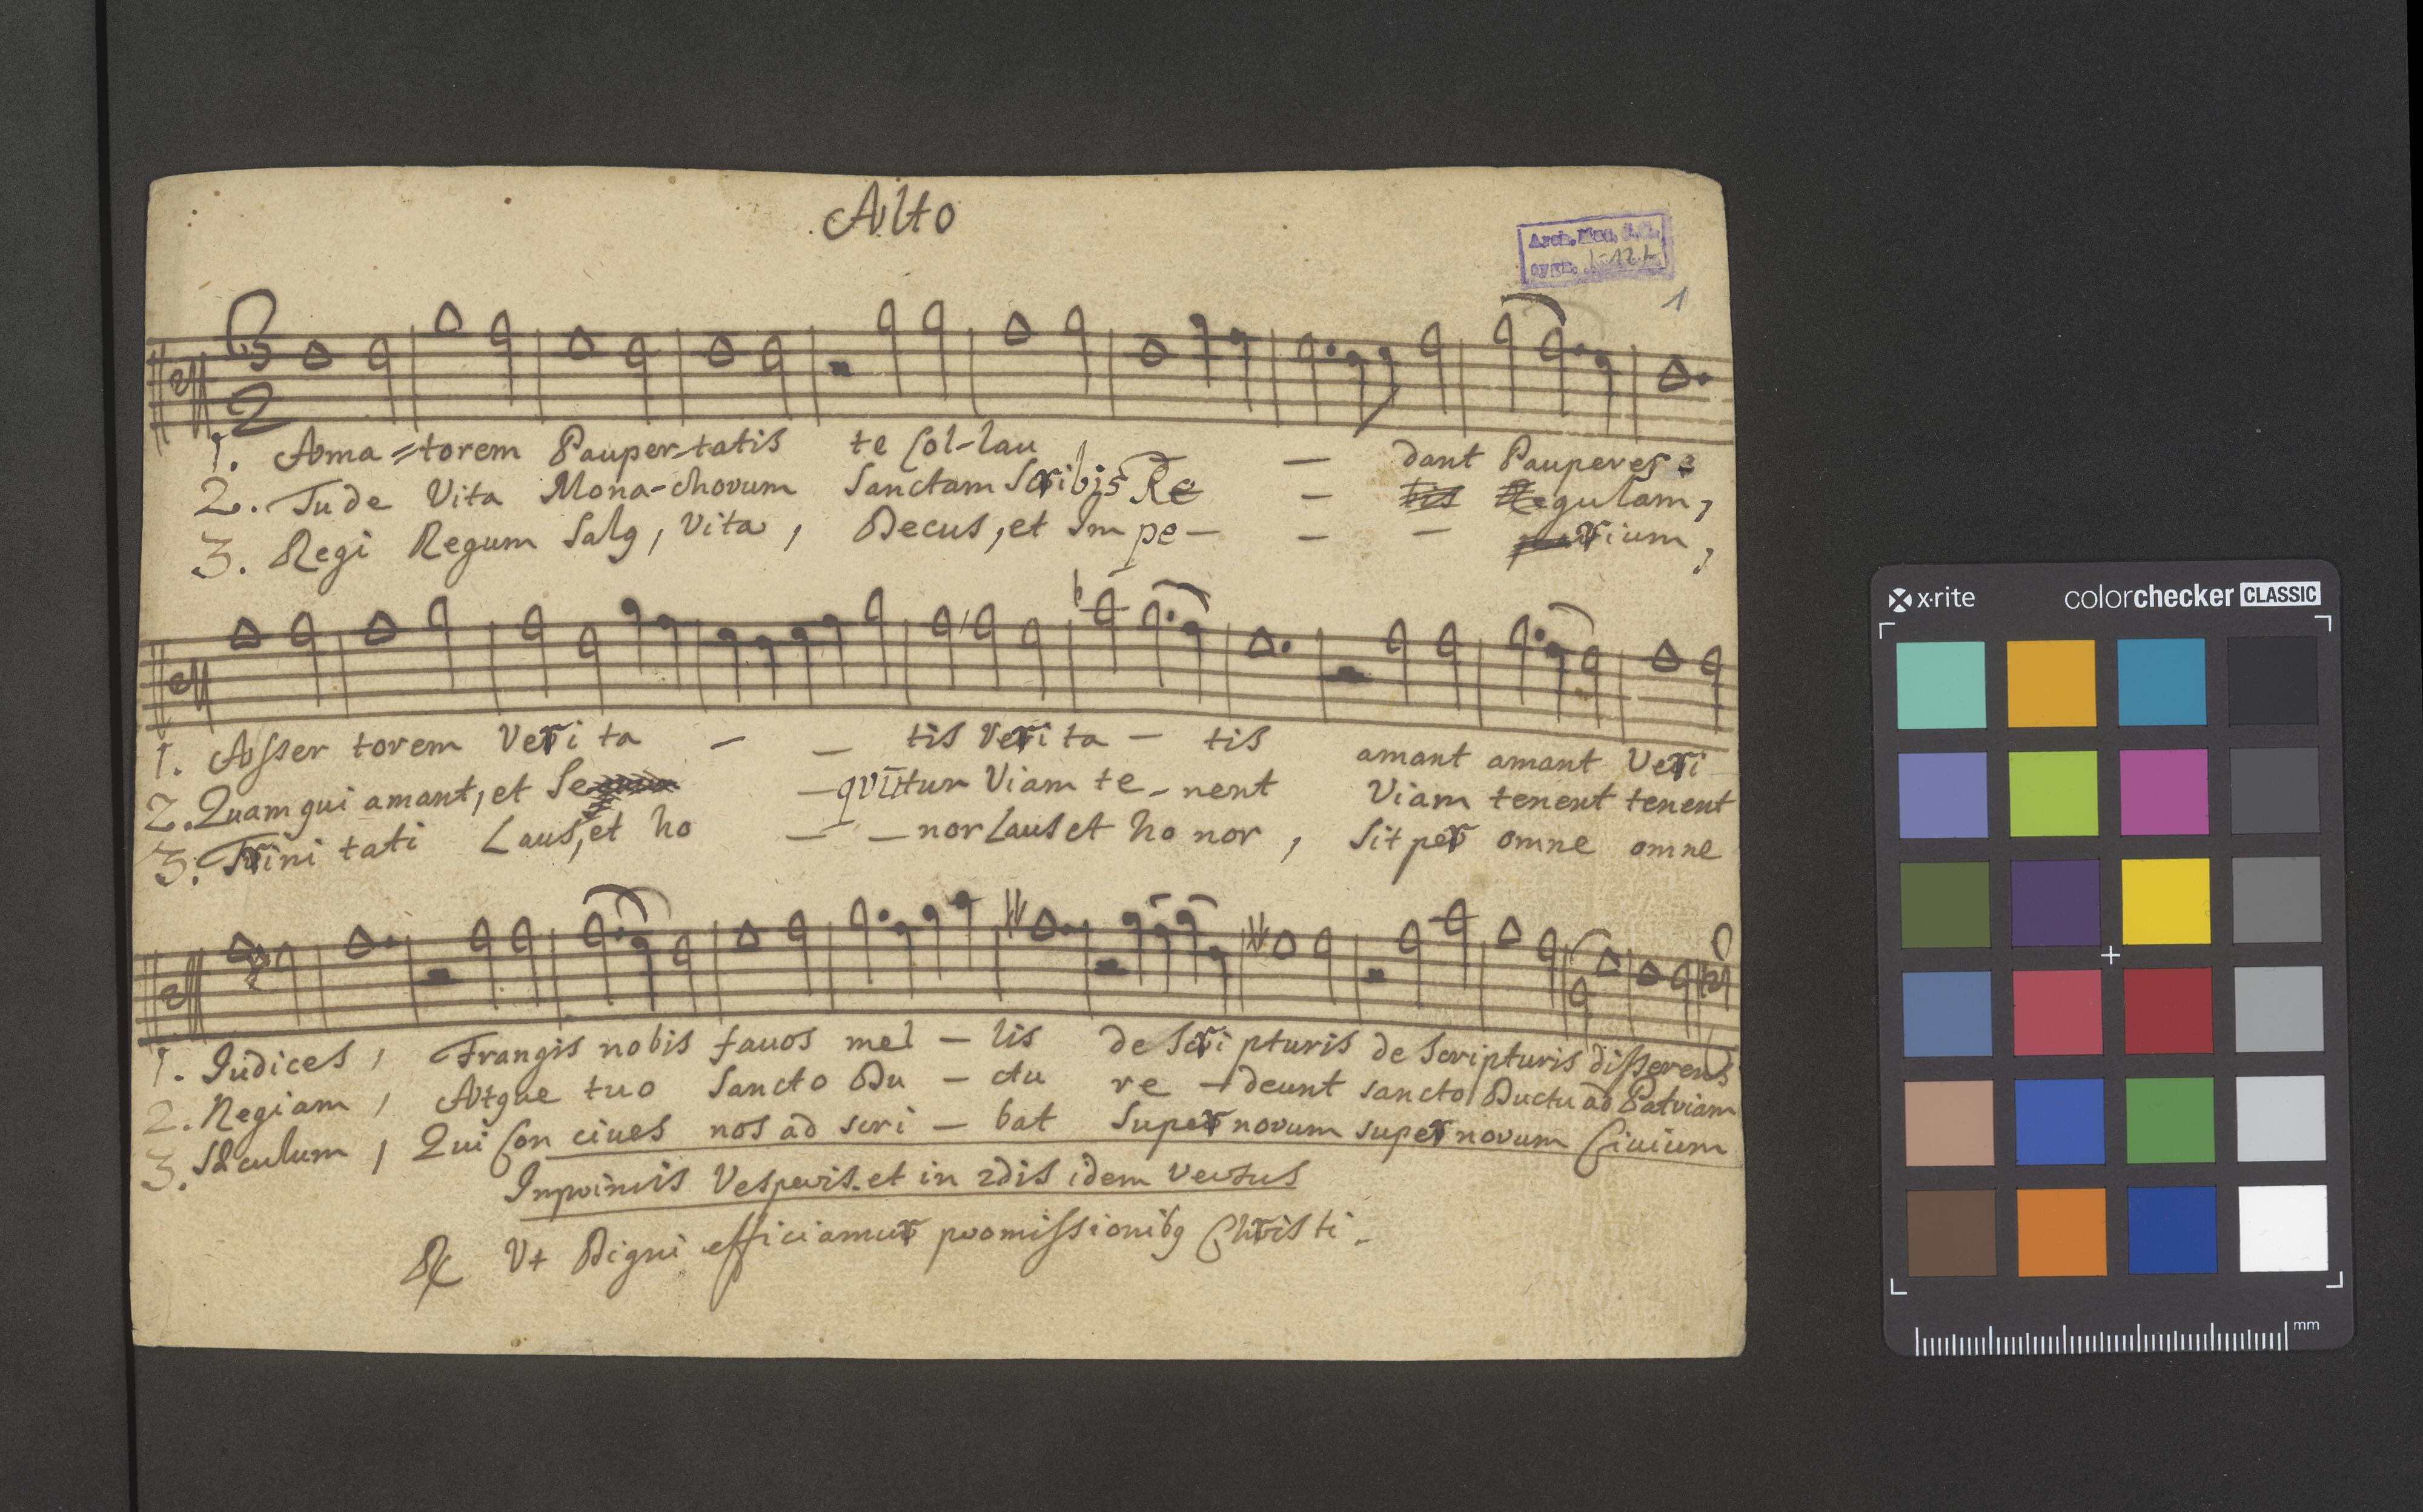 Alto
Arch. Mus. J. G.
sygn.
1
3
2
1. Ama=torem Pauper-tatis te Col-lau — dant Pauperes:
2. Tu de Vita Mona-chorum Sanctam Scribis Re — Regulam,
3. Regi Regum Salg, Vita, Decus, et Impe- — — rium,
1. Asser torem Veri ta — — tis Veri ta — tis amant amant Veri
2. Quam qui amant, et Se — qvūtur Viam te - nent Viam tenent tenent
3. Trini tati Laus, et ho — — nor Laus et ho nor, sit per omne omne
1. Iudices, Frangis nobis fauos mel — lis de Scri pturis de Scripturis disserens
2. Regiam, Atque tuo Sancto Du — ctu re — deunt sancto Ductu ad Patriam
3. Sæculum, Qui Con ciues nos ad scri — bat Supernorum supernorum Ciuium
Inprimis Vesperis et in 2dis idem versus
℟ Vt Digni efficiamur promissionibg Christi.
x·rite
colorchecker CLASSIC
mm